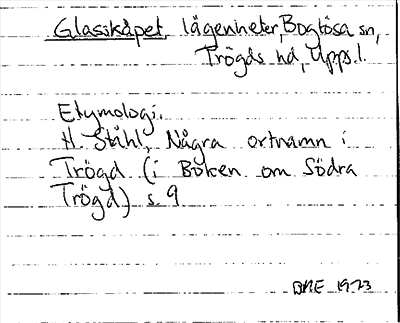 Glasskåpet, lägenheter, Boglösa sn,
Trögds hd, Upps. l.
Etymologi.
H. Ståhl, Några ortnamn i
Trögd (i Boken om Södra
Trögd) s. 9
1973